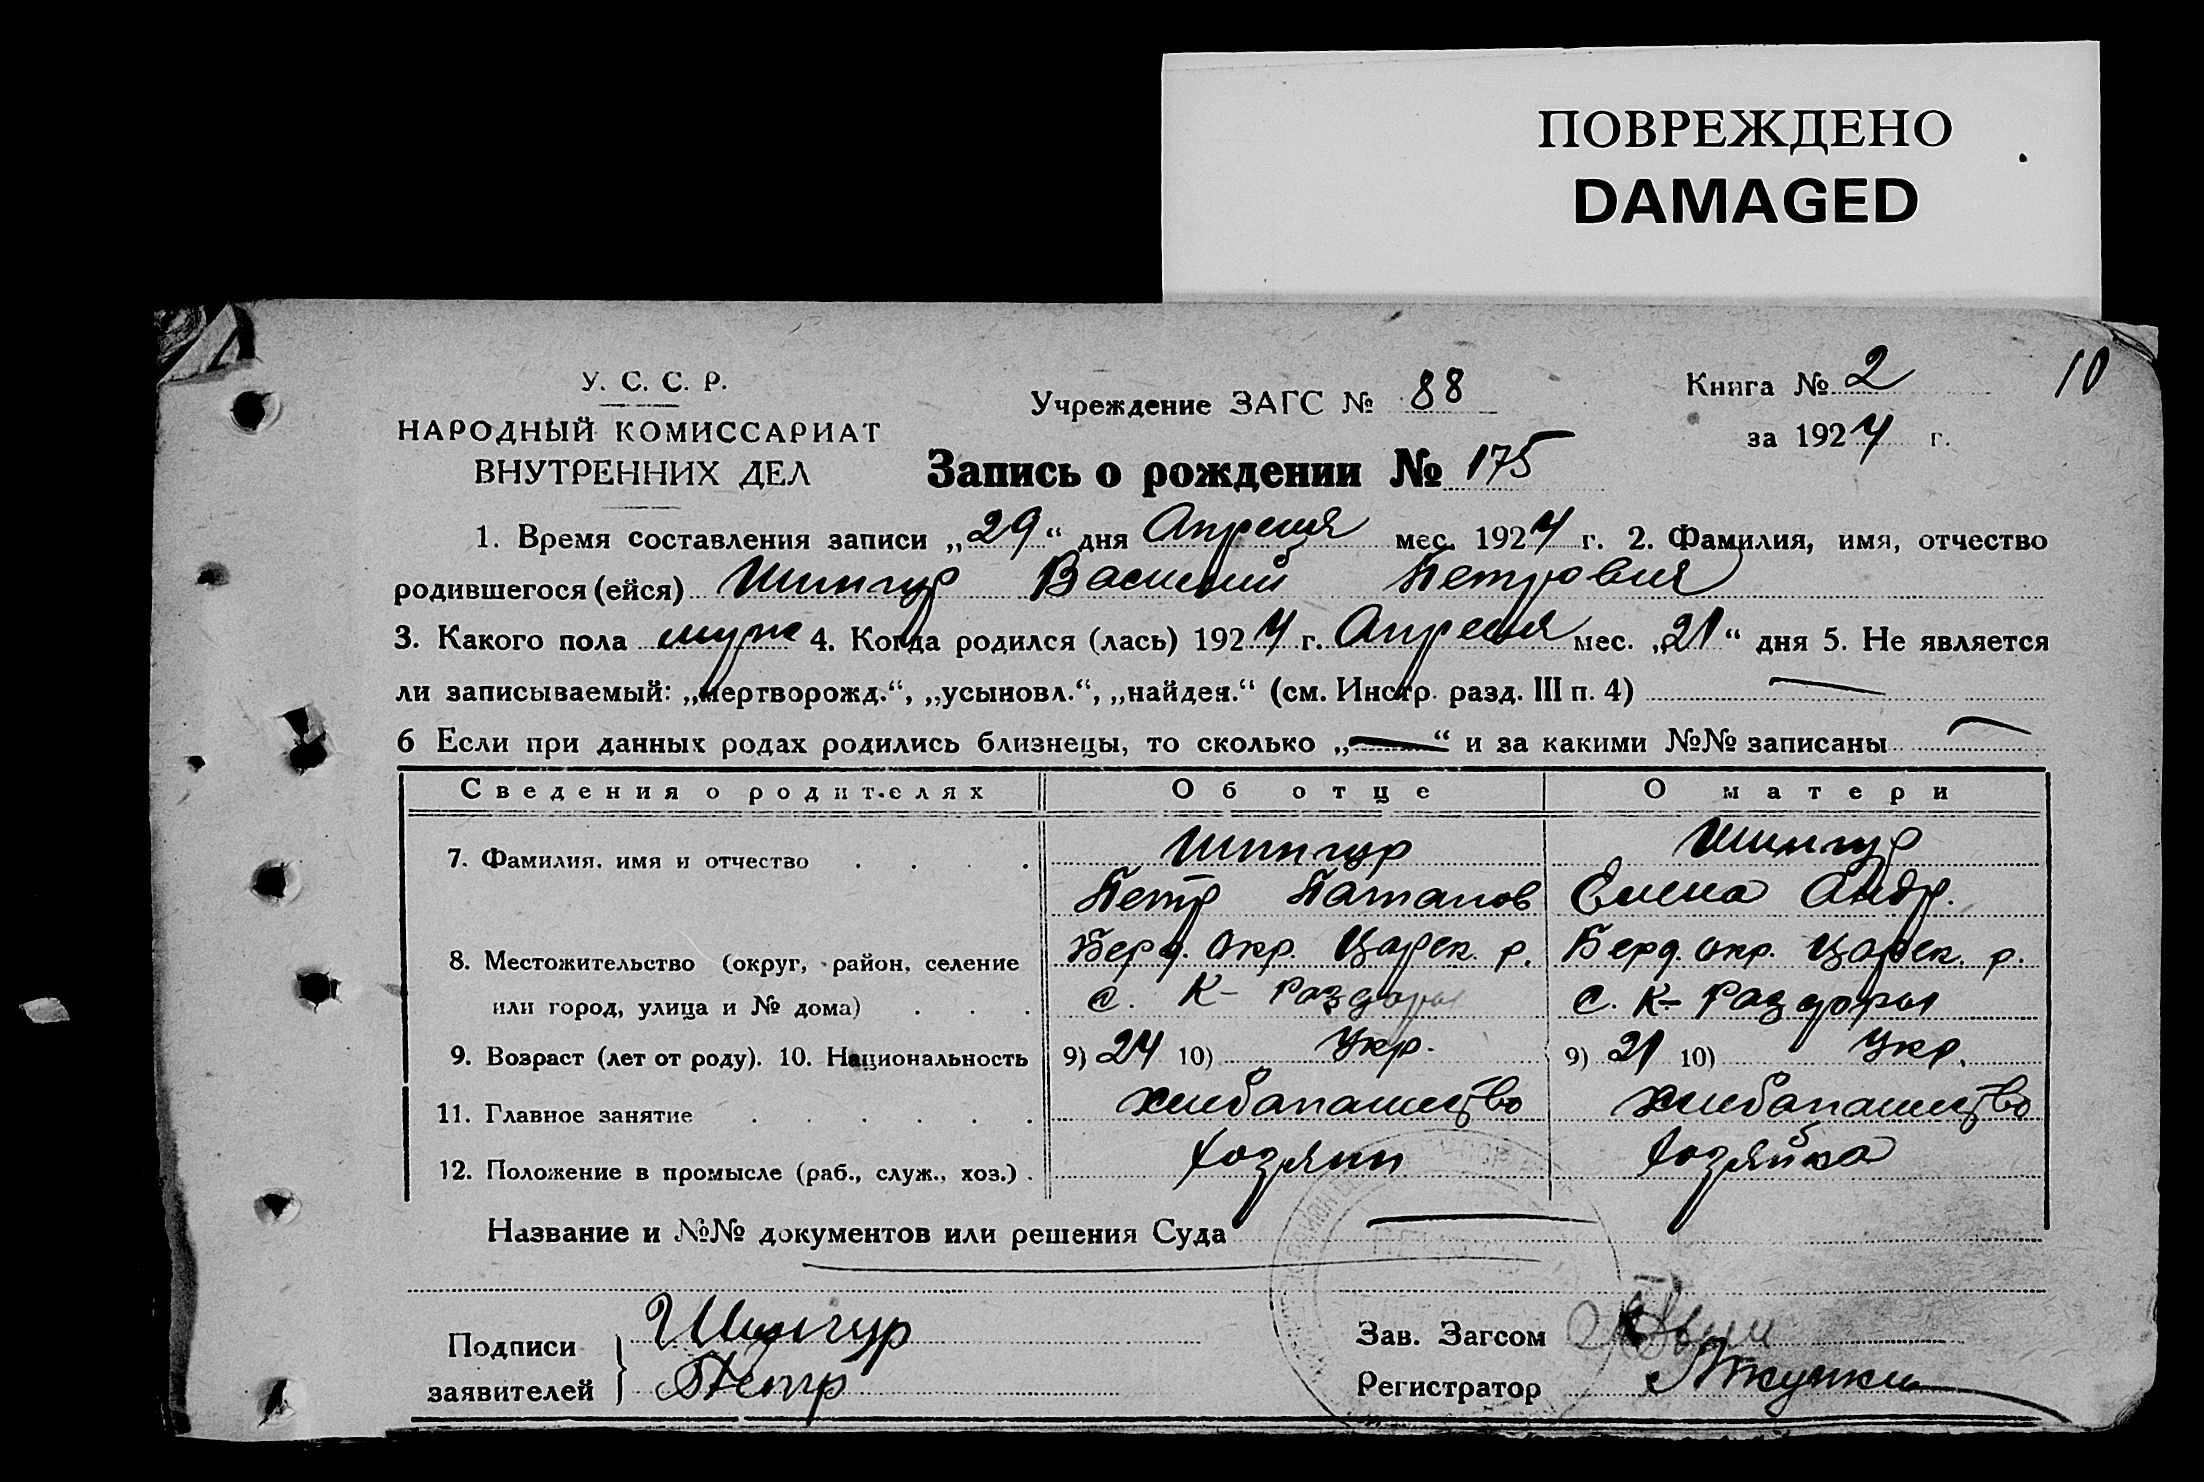 ПОВРЕЖДЕНО
DAMAGED
10
У. С. С. Р.
НАРОДНЫЙ КОМИССАРИАТ
ВНУТРЕННИХ ДЕЛ
Учреждение ЗАГС № 88
Книга № 2
за 1924 г.
Запись о рождении № 175
1. Время составления записи „29“ дня Апреля мес. 1924 г. 2. Фамилия, имя, отчество
родившегося (ейся) Шингур Василий Петрович
3. Какого пола муж 4. Когда родился (лась) 1924 г. Апреля мес. „21“ дня 5. Не является
ли записываемый: „мертворожд.“, „усыновл.“, „найден.“ (см. Инстр. разд. III п. 4) —
6 Если при данных родах родились близнецы, то сколько „—“ и за какими №№ записаны —
Сведения о родителях Об отце О матери
7. Фамилия. имя и отчество . . . . Шингур Шингур
Петр Потапов Елена Андр.
8. Местожительство (округ, район, селение Берд. окр. Царек. р. Берд. окр. Царек. р.
или город, улица и № дома) . . . с. К- Раздоры с. К- Раздоры
9. Возраст (лет от роду). 10. Национальность 9) 24 10) Укр. 9) 21 10) Укр.
11. Главное занятие . . . . . . хлебопашество хлебопашество
12. Положение в промысле (раб., служ., хоз.) . хозяин хозяйка
Название и №№ документов или решения Суда —
Подписи
заявителей
Шингур
Петр
Зав. Загсом
Регистратор